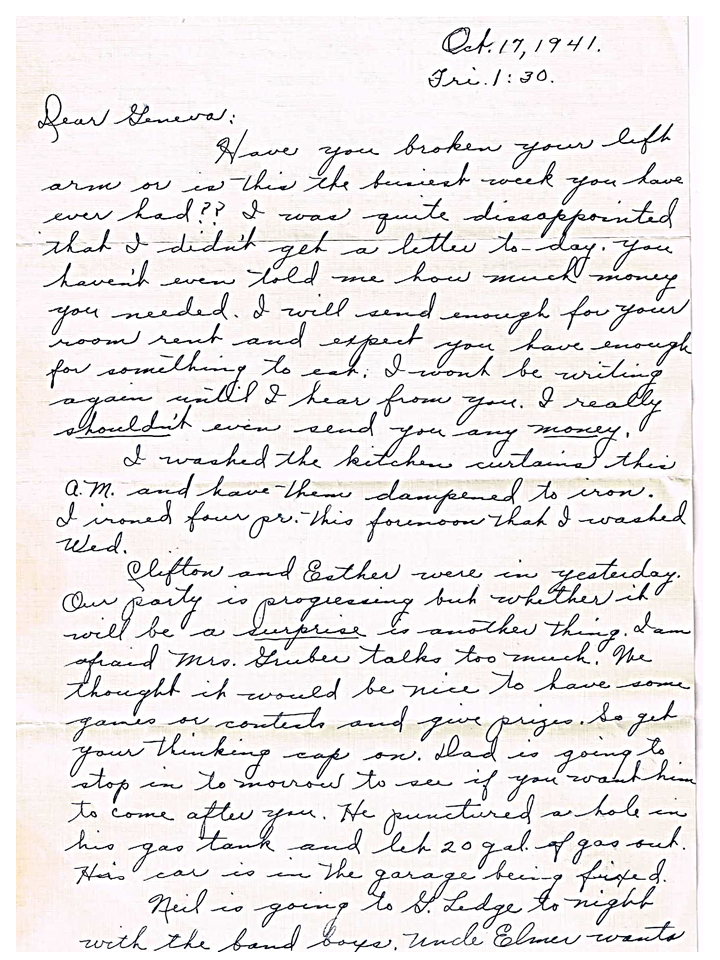 Oct. 17, 1941.
Fri. 1:30.
Dear Geneva:
Have you broken your left
arm or is this the busiest week you have
ever had?? I was quite dissappointed
that I didn't get a letter to-day. You
haven't even told me how much money
you needed. I will send enough for your
room rent and expect you have enough
for something to eat. I won't be writing
again until I hear from you. I really
shouldn't even send you any money.
I washed the kitchen curtains this
A.M. and have them dampened to iron.
I ironed four pr. this forenoon that I washed
Wed.
Clifton and Esther were in yesterday.
Our party is progressing but whether it
will be a surprise is another thing. I am
afraid Mrs. Gruber talks too much. We
thought it would be nice to have some
games or contests and give prizes. So get
your thinking cap on. Dad is going to
stop in to morrow to see if you want him
to come after you. He punctured a hole in
his gas tank and let 20 gal. of gas out.
His car is in the garage being fixed.
Neil is going to G. Ledge to night
with the band boys. Uncle Elmer wants